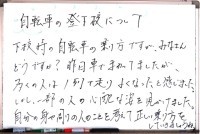 自転車の登下校について
下校時の自転車の乗り方ですが、みなさん
どうですか？昨日まで
多くの人は1列で走り、よくなったと感じました。
しかし、一部の人の心配な姿を見かけました。
自分の身や周りの人のことを考えて正しい乗り方を
していきましょう